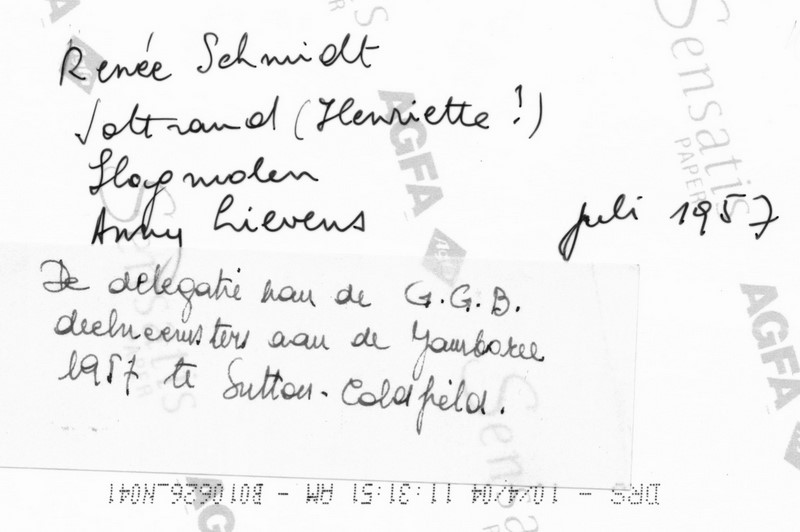 Renée Schmidt
Joltrand (Henriette!)
Slagmolen
Anny Lievens
juli 1957
De delegatie van de G.G.B.
deelneemsters aan de Jamboree
1957 te Sutton-Coldfield.
AGFA
Sensatis
PAPER
DRS - 10/4/04 11:31:51 AM - B010626_N041